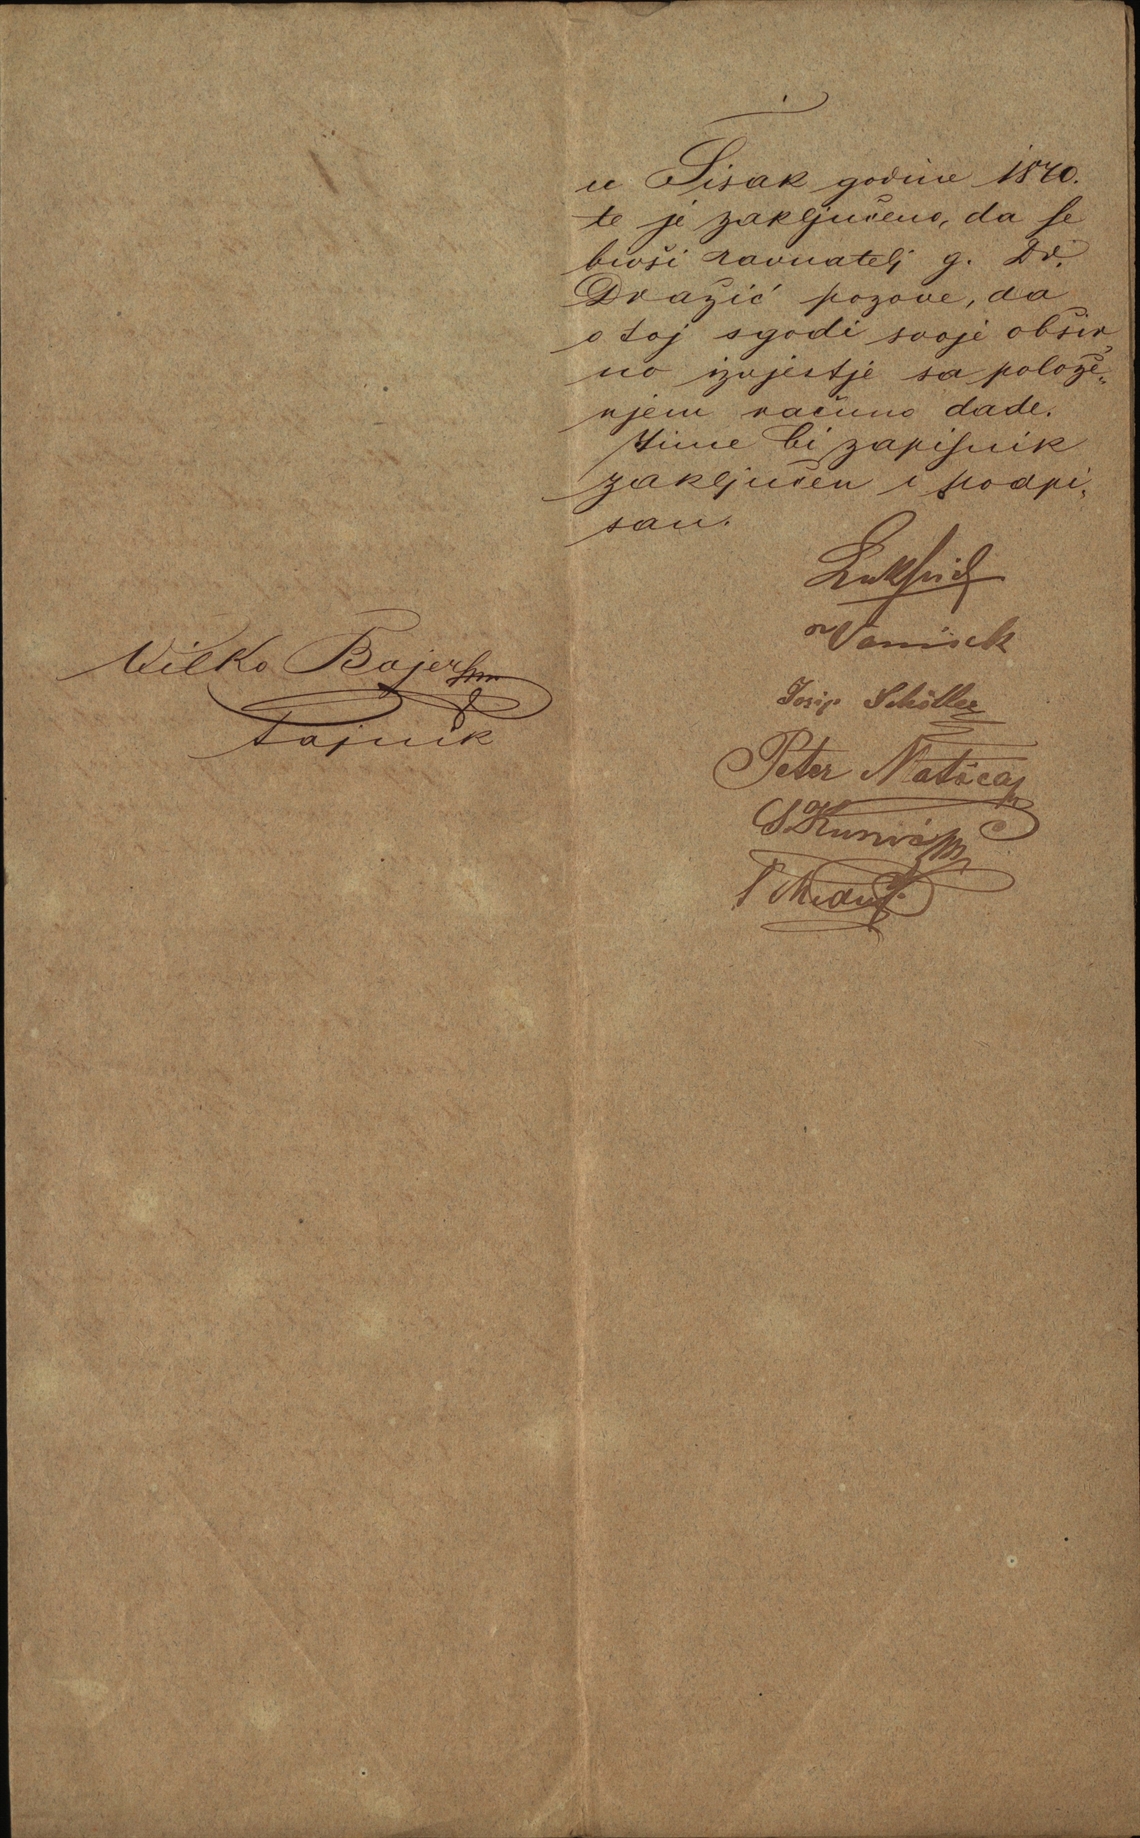 u Sisak godine 1870.
te je zaključeno, da se
bivši ravnatelj g. Dr.
Dražić pozove, da
o toj sgodi svoje obšir„
no izvjestje sa polože„
njem računo dade.
Time bi zapisnik
zaključen i podpi„
san.
Vanisek
Josip Schöller
Peter
Wilko Bojer
tajnik